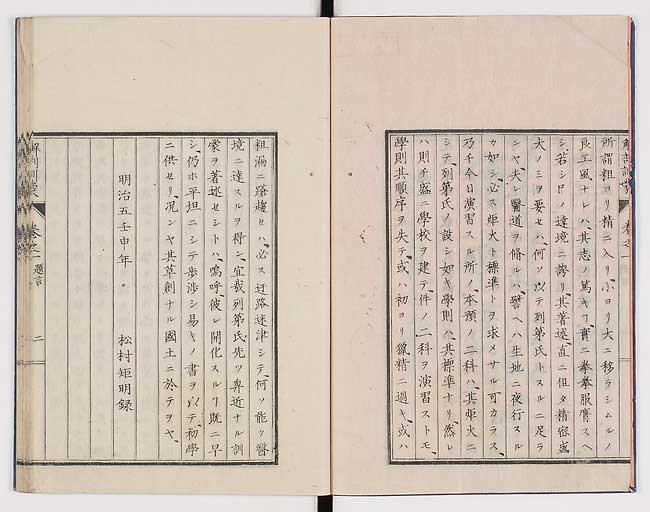 解剖訓蒙 巻之一
所謂粗ヨリ精ニ入リ、小ヨリ大ニ移ラシムルノ
良工風ナレハ、其志ノ篤キヿ、實ニ拳拳服膺スヘ
シ、若シ此ノ遠境ニ誇リ、其著述直ニ但タ精密盛
大ノミヲ要セハ、何ソ以テ列第氏トスルニ足ラ
ンヤ、夫レ醫道ヲ脩ルハ、譬ヘハ生地ニ夜行スル
カ如シ、必ス炬火ト標準トヲ求メサル可カラス、
乃チ今日演習スル所ノ、本預ノ二科ハ、其炬火ニ
シテ、列第氏ノ設シ如キ學則ハ、其標準ナリ、然レ
ハ則チ盛ニ學校ヲ建テ、件ノ二科ヲ演習ストモ、
學則其順序ヲ失テ、或ハ初ヨリ獵精ニ過キ、或ハ
粗漏ニ踏趨セハ、必ス迂路迷津シテ、何ソ能ク醫
境ニ達スルヲ得ン、宜哉列第氏先ツ專近ナル訓
蒙ヲ著述セシトハ、嗚呼彼レ開化スルヿ既ニ早
シ、仍ホ平坦ニシテ歩渉シ易キノ書ヲ以テ、初學
ニ供セリ、况ンヤ其草創ナル國土ニ於テヲヤ、
明治五壬申年
松村矩明録
解剖訓蒙 巻之一 題言 二